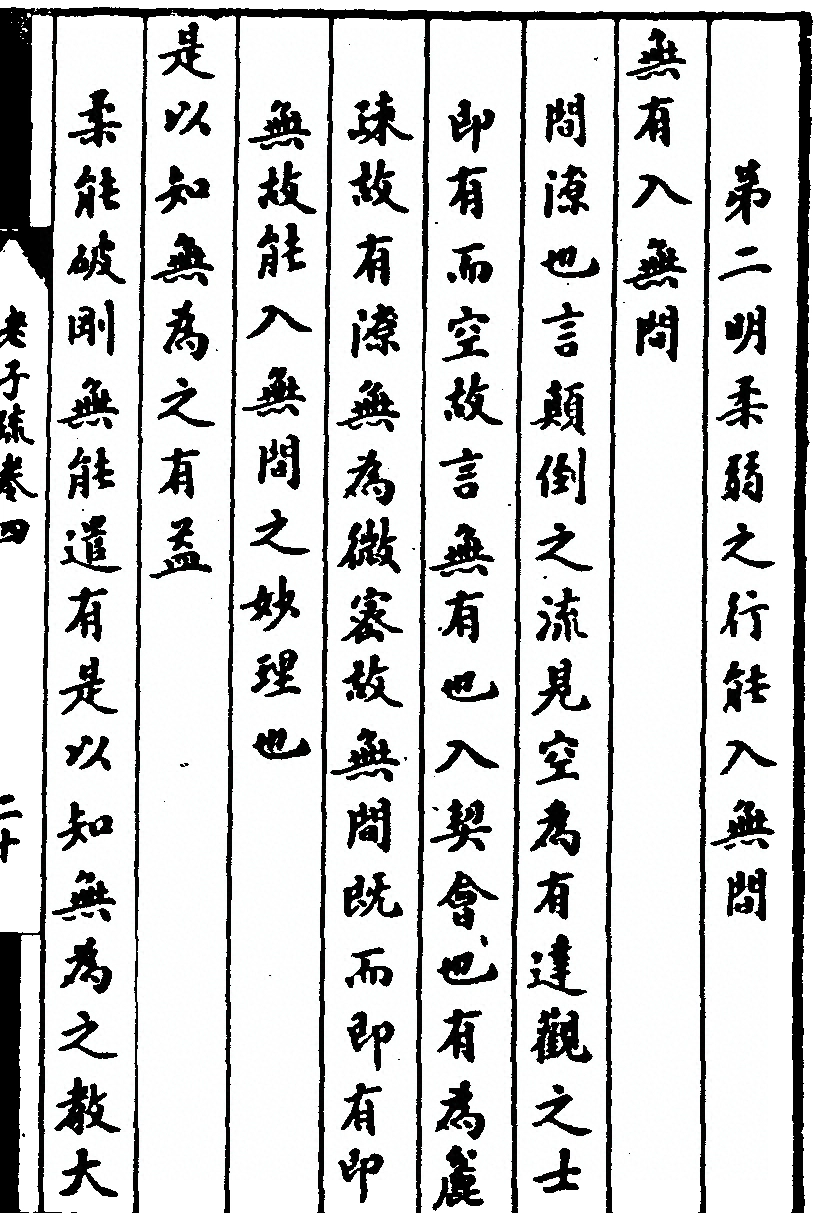 第二明柔弱之行能入無間
無有入無間
間潦也言顛倒之流見空為有達觀之士
即有而空故言無有也入契會也有為麁
疎故有潦無為微宻故無間既而即有即
無故能入無間之妙理也
是以知無為之有益
柔能破剛無能遣有是以知無為之教大
老子疏卷四
二十